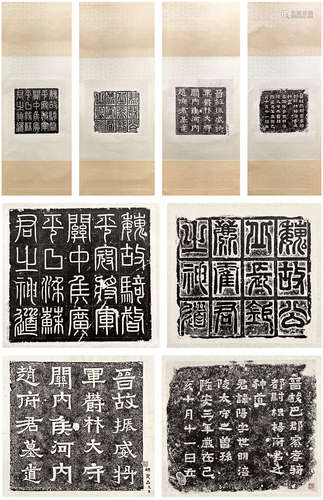 易拍全球
魏故騎督
平寇將軍
關中侯廣
平曲梁蘇
君之神道
魏故公
之神道
晉故振威將
軍鬱林太守
關內侯河內
趙府君墓道
晉故巴郡察孝騎
都尉枳楊府君之
神道
君諱陽字世明涪
陵太守之曾孫
隆安三年歲在己
亥十月十一日立